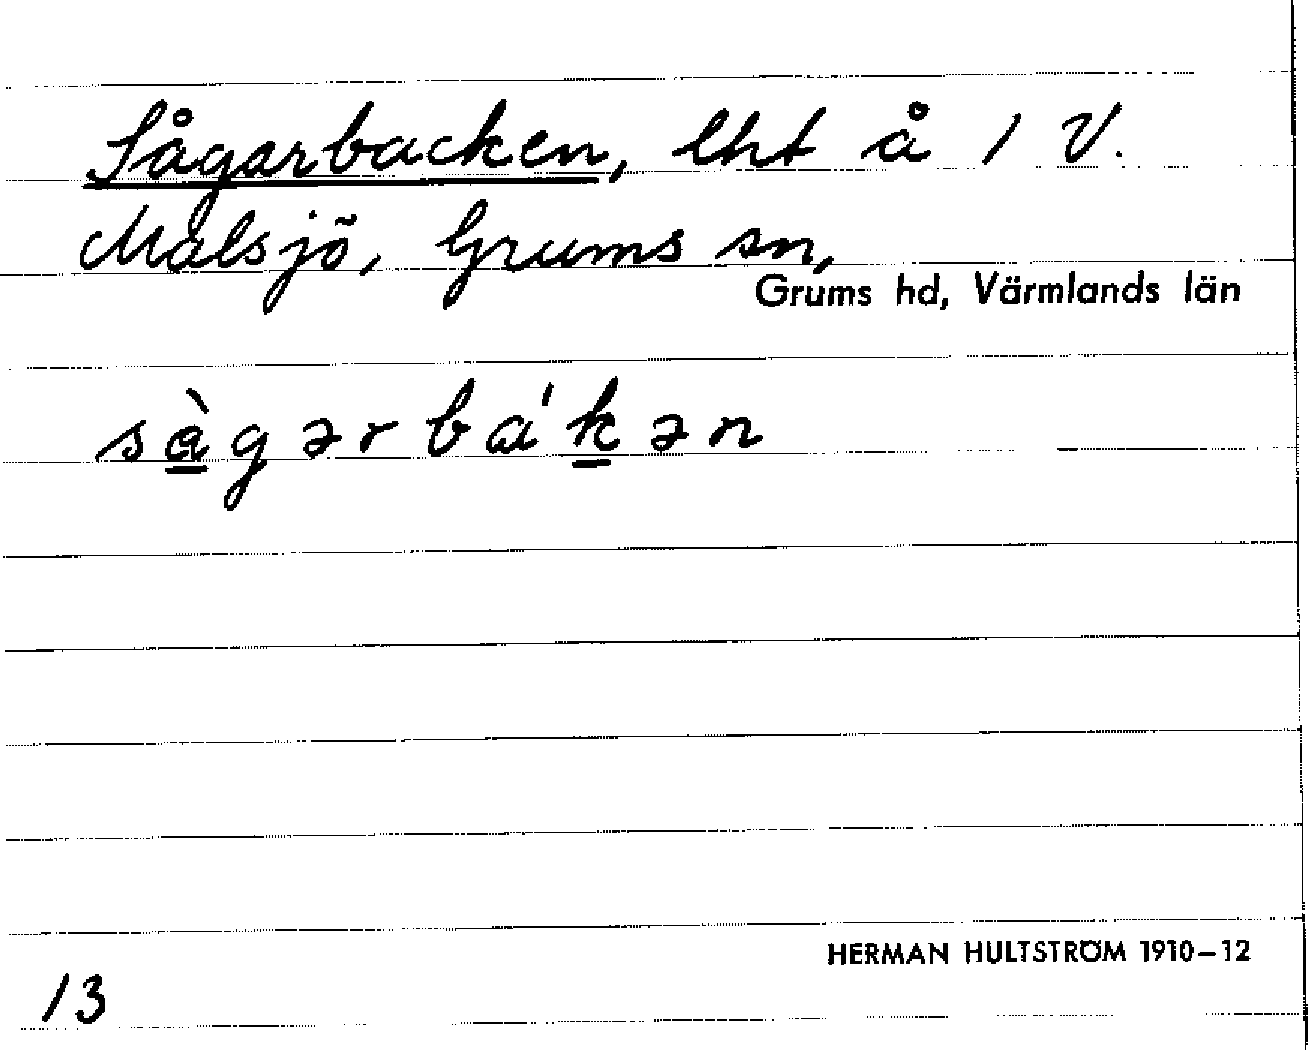 Sågarbacken, lht å 1 V.
Malsjö, Grums sn,
Grums hd, Värmlands län
sà̲gərbák̲ən
HERMAN HULTSTRÖM 1910–12
13